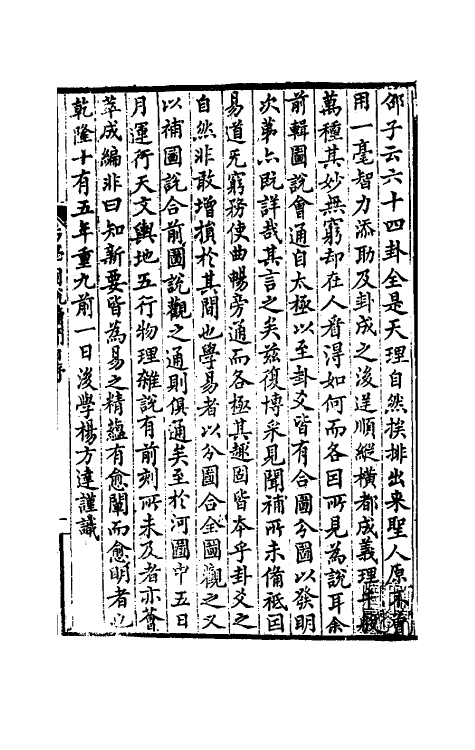 邵子云六十四卦全是天理自然挨排出来聖人原不曾
用一毫智力添助及卦成之後逆順縱横都成義理千般
萬種其妙無窮却在人看得如何而各因所見為說耳余
前輯圖說會通自太極以至卦爻皆有合圖分圖以發明
次第亦既詳哉其言之矣兹復博采見聞補所未備祗因
易道无窮務使曲暢旁通而各極其趣固皆本乎卦爻之
自然非敢增損於其間也學易者以分圖合全圖觀之又
以補圖說合前圖說觀之通則俱通矣至於河圖中五日
月運行天文輿地五行物理雜說有前刻所未及者亦薈
萃成編非曰知新要皆為易之精蘊有愈闡而愈明者
乾隆十有五年重九前一日後學楊方達謹識